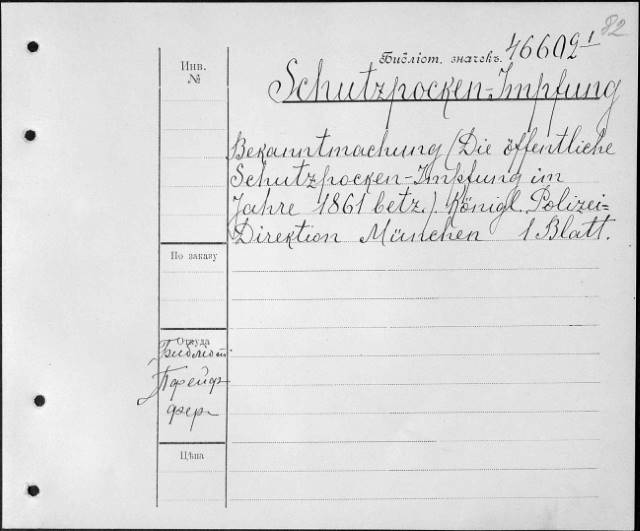 82
Библіот. значекъ. 46602 1
Инв.
№
Schutzpocken-Impfung
Bekanntmachung (Die öffentliche
Schutzpocken-Impfung im
Jahre 1861 betz.). Königl. Polizei-
Direktion München 1 Blatt.
По заказу
Откуда
Библіот.
Пфейф-
фер
Цѣна